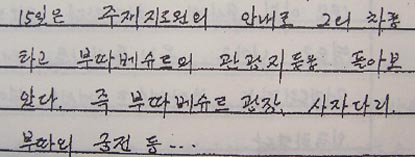 15일은 주재지도원의 안내로 그의 차를
타고 부따베슈트의 관광지들을 돌아보
았다. 즉 부따베슈트 광장, 사자다리.
부따의 궁전 등···